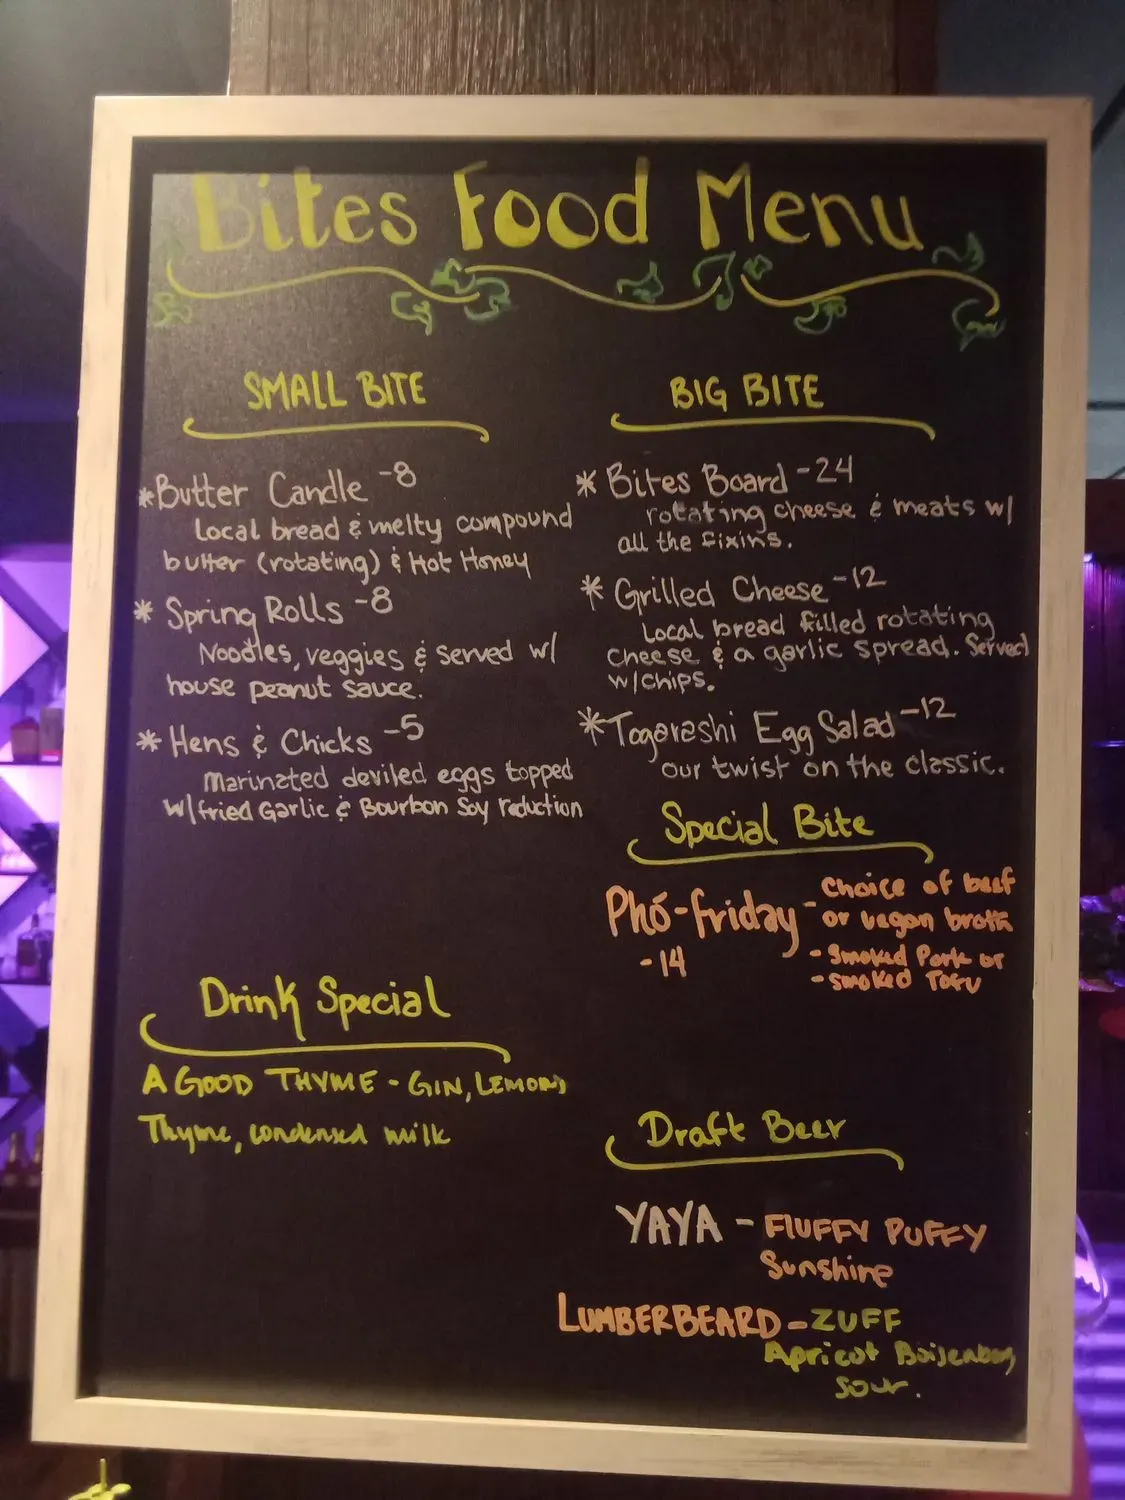 Bites Food Menu
SMALL BITE
*Butter Candle -8
Local bread & melty compound
butter (rotating) & Hot Honey
* Spring Rolls -8
Noodles, veggies & served w/
house peanut sauce.
* Hens & Chicks -5
Marinated deviled eggs topped
w/fried Garlic & Bourbon Soy reduction
Drink Special
A GOOD THYME - GIN, LEMON,
Thyme, condensed milk
BIG BITE
* Bites Board -24
rotating cheese & meats w/
all the fixins.
* Grilled Cheese -12
Local bread filled rotating
cheese & a garlic spread. Served
w/chips.
*Togarashi Egg Salad -12
our twist on the classic.
Special Bite
Phó-friday - choice of beef
or vegan broth
-14
- Smoked Pork or
- smoked Tofu
Draft Beer
YAYA - FLUFFY PUFFY
Sunshine
LUMBERBEARD - ZUFF
Apricot
Sour.